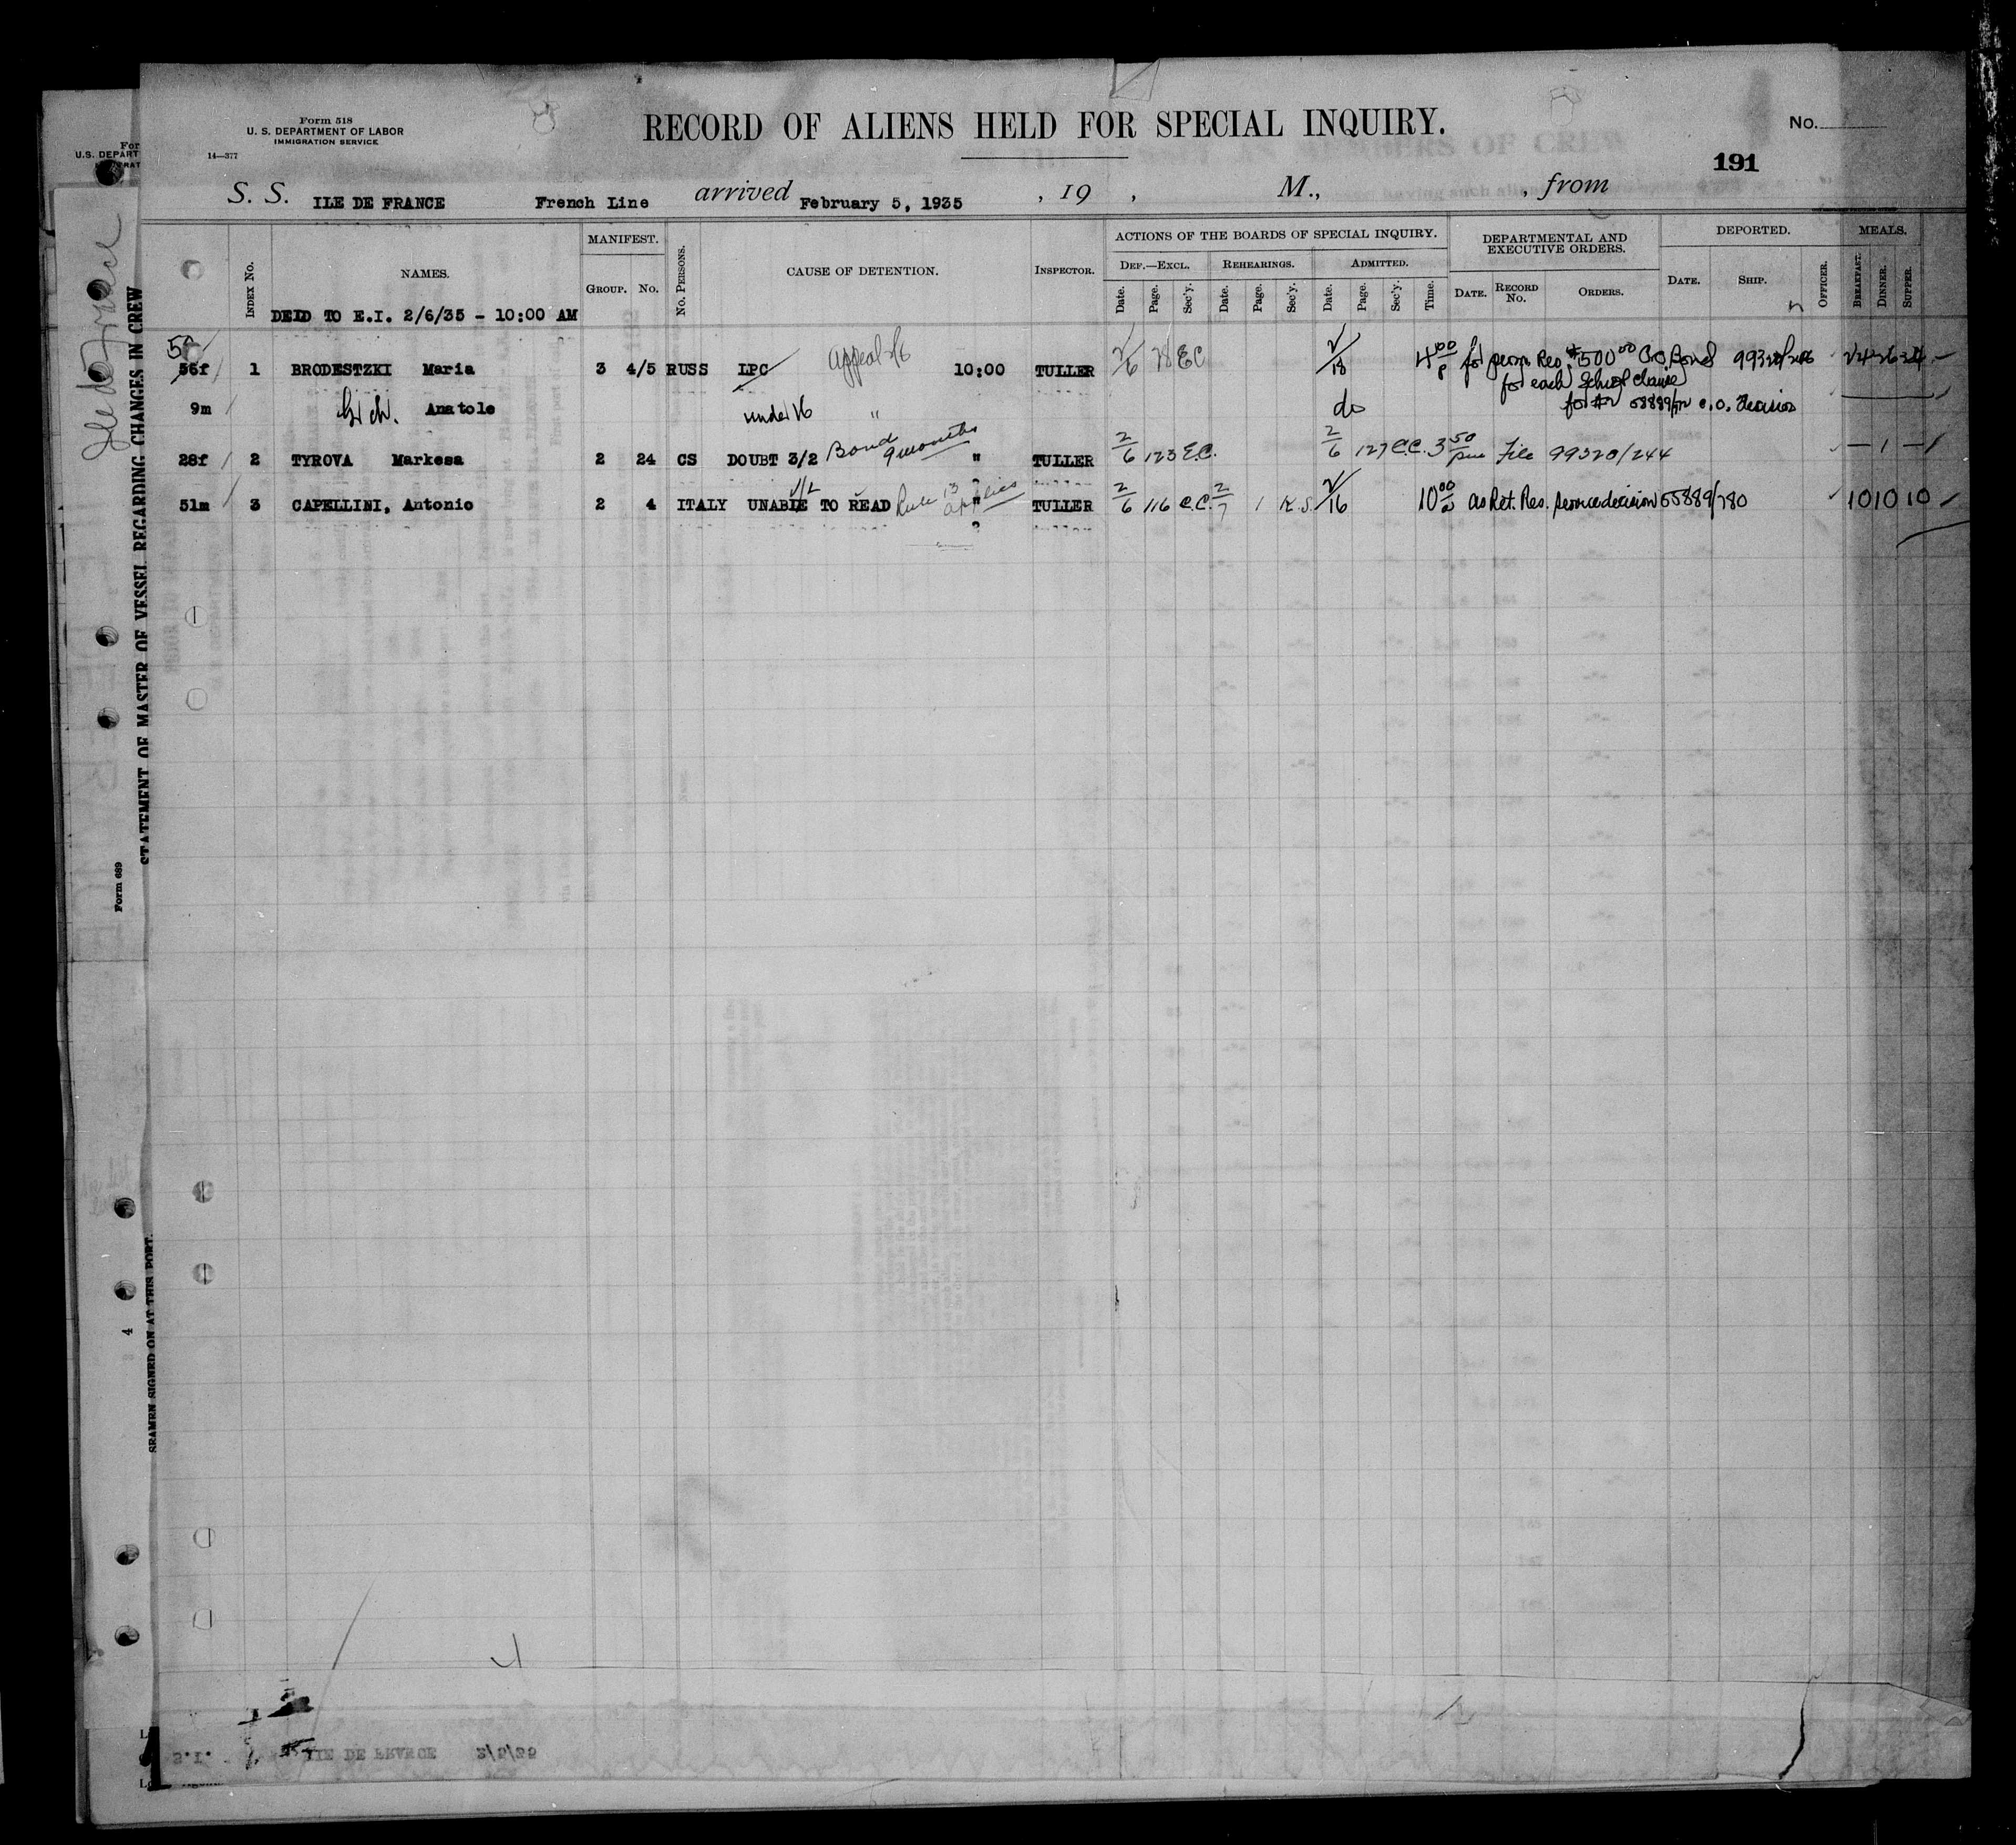 Form 518
U. S. DEPARTMENT OF LABOR
IMMIGRATION SERVICE
14—377
RECORD OF ALIENS HELD FOR SPECIAL INQUIRY.
No.
191
S. S. ILE DE FRANCE French Line arrived February 5, 1935 , 19 , M., , from
INDEX No.
NAMES.
DELD TO E.I. 2/6/35 - 10:00 AM
MANIFEST.
GROUP. No.
No. PERSONS.
CAUSE OF DETENTION.
INSPECTOR.
ACTIONS OF THE BOARDS OF SPECIAL INQUIRY.
DEF.—EXCL. REHEARINGS. ADMITTED.
Date. Page. Sec'y. Date. Page. Sec'y. Date. Page. Sec'y. Time.
DEPARTMENTAL AND
EXECUTIVE ORDERS.
DATE. RECORD No. ORDERS.
DEPORTED.
DATE. SHIP. OFFICER.
MEALS.
BREAKFAST. DINNER. SUPPER.
56f 1 BRODESTZKI Maria 3 4/5 RUSS LPC Appeal 2/6 10:00 TULLER 2/6 78 EC 2/18 4 00 p for perm Res. $500 00 Bond
for each School clause
9m Anatole under 16 " do decision
28f 2 TYROVA Markesa 2 24 CS DOUBT 3/2 Bond 9 months " TULLER 2/6 123 E.C. 2/6 127 E.C. 3 50 pm File 99320/244
51m 3 CAPELLINI, Antonio 2 4 ITALY UNABLE TO READ Rule 13 applies " TULLER 2/6 116 E.C. 2/7 1 K.S. 2/16 10 00 as Ret. Res. decision 55889/780 10 10 10
Ile de France
STATEMENT OF MASTER OF VESSEL REGARDING CHANGES IN CREW
Form 689
SEAMEN SIGNED ON AT THIS PORT.
4